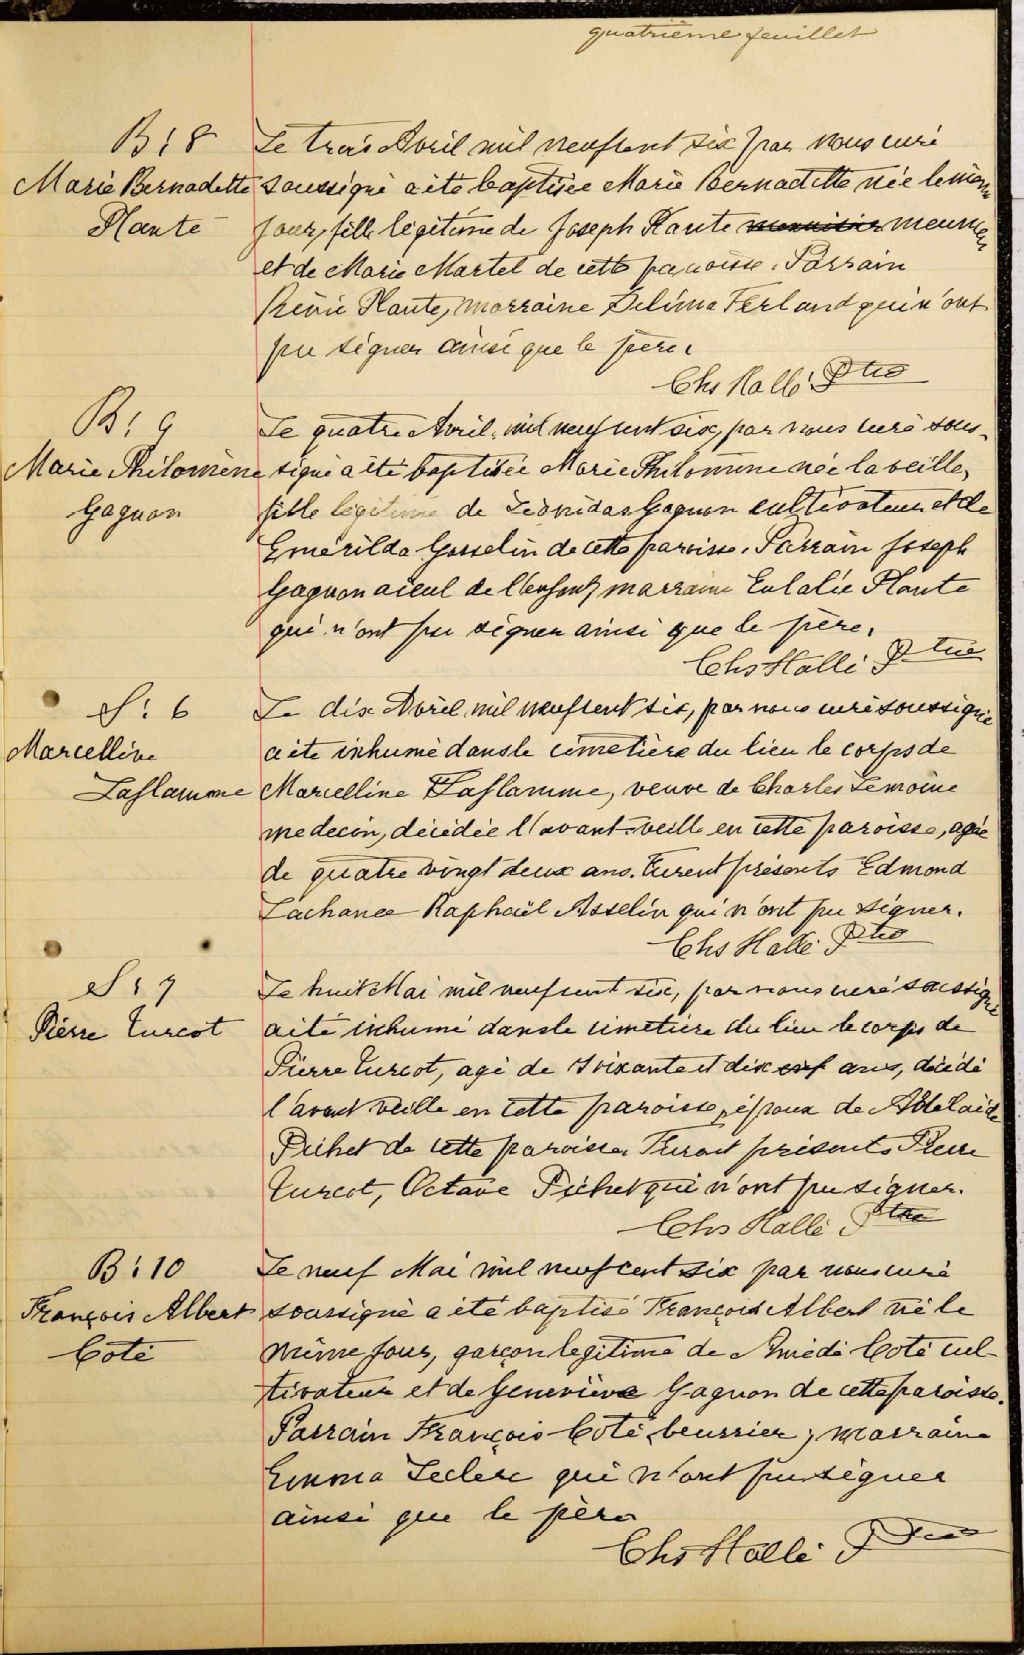 quatrième feuillet
B: 8
Marie Bernadette
Plante
Le trois Avril mil neufcent six par nous curé
soussigné a été baptisée Marie Bernadette née le même
jour, fille légitime de Joseph Plante meunier
et de Marie Martel de cette paroisse. Parrain
Plante, marraine Delima Ferland qui n'ont
pu signer ainsi que le père.
Chs Hallé Ptre
B: 9
Marie Philomène
Gagnon
Le quatre Avril, mil neuf cent six, par nous curé sous-
signé a été baptisée Marie Philomène née la veille,
fille légitime de Léonidas Gagnon cultivateur et de
Emérilda Gosselin de cette paroisse. Parrain Joseph
Gagnon aieul de l'enfant, marraine Eulalie Plante
qui n'ont pu signer ainsi que le père.
Chs Hallé Ptre
S: 6
Marcelline
Laflamme
Le dix Avril mil neufcent six, par nous curé soussigné
a été inhumé dans le cimetière du lieu le corps de
Marcelline Laflamme, veuve de Charles Lemoine
medecin, décédée l'avant-veille en cette paroisse, agée
de quatre vingt deux ans. Furent présents Edmond
Lachance Raphaël Asselin qui n'ont pu signer.
Chs Hallé Ptre
S: 7
Pierre Turcot
Le huit Mai mil neufcent six, par nous curé soussigné
a été inhumé dans le cimetière du lieu le corps de
Pierre Turcot, agé de soixante et dix ans, décédé
l'avant veille en cette paroisse, époux de Adélaide
Pichet de cette paroisse. Furent présents Pierre
Turcot, Octave Pichet qui n'ont pu signer.
Chs Hallé Ptre
B: 10
François Albert
Coté
Le neuf Mai mil neuf cent six par nous curé
soussigné a été baptisé François Albert né le
même jour, garçon légitime de Amédé Coté cul-
tivateur et de Geneviève Gagnon de cette paroisse.
Parrain François Coté, beurrier, marraine
Emma Leclerc qui n'ont pu signer
ainsi que le père
Chs Hallé Ptre